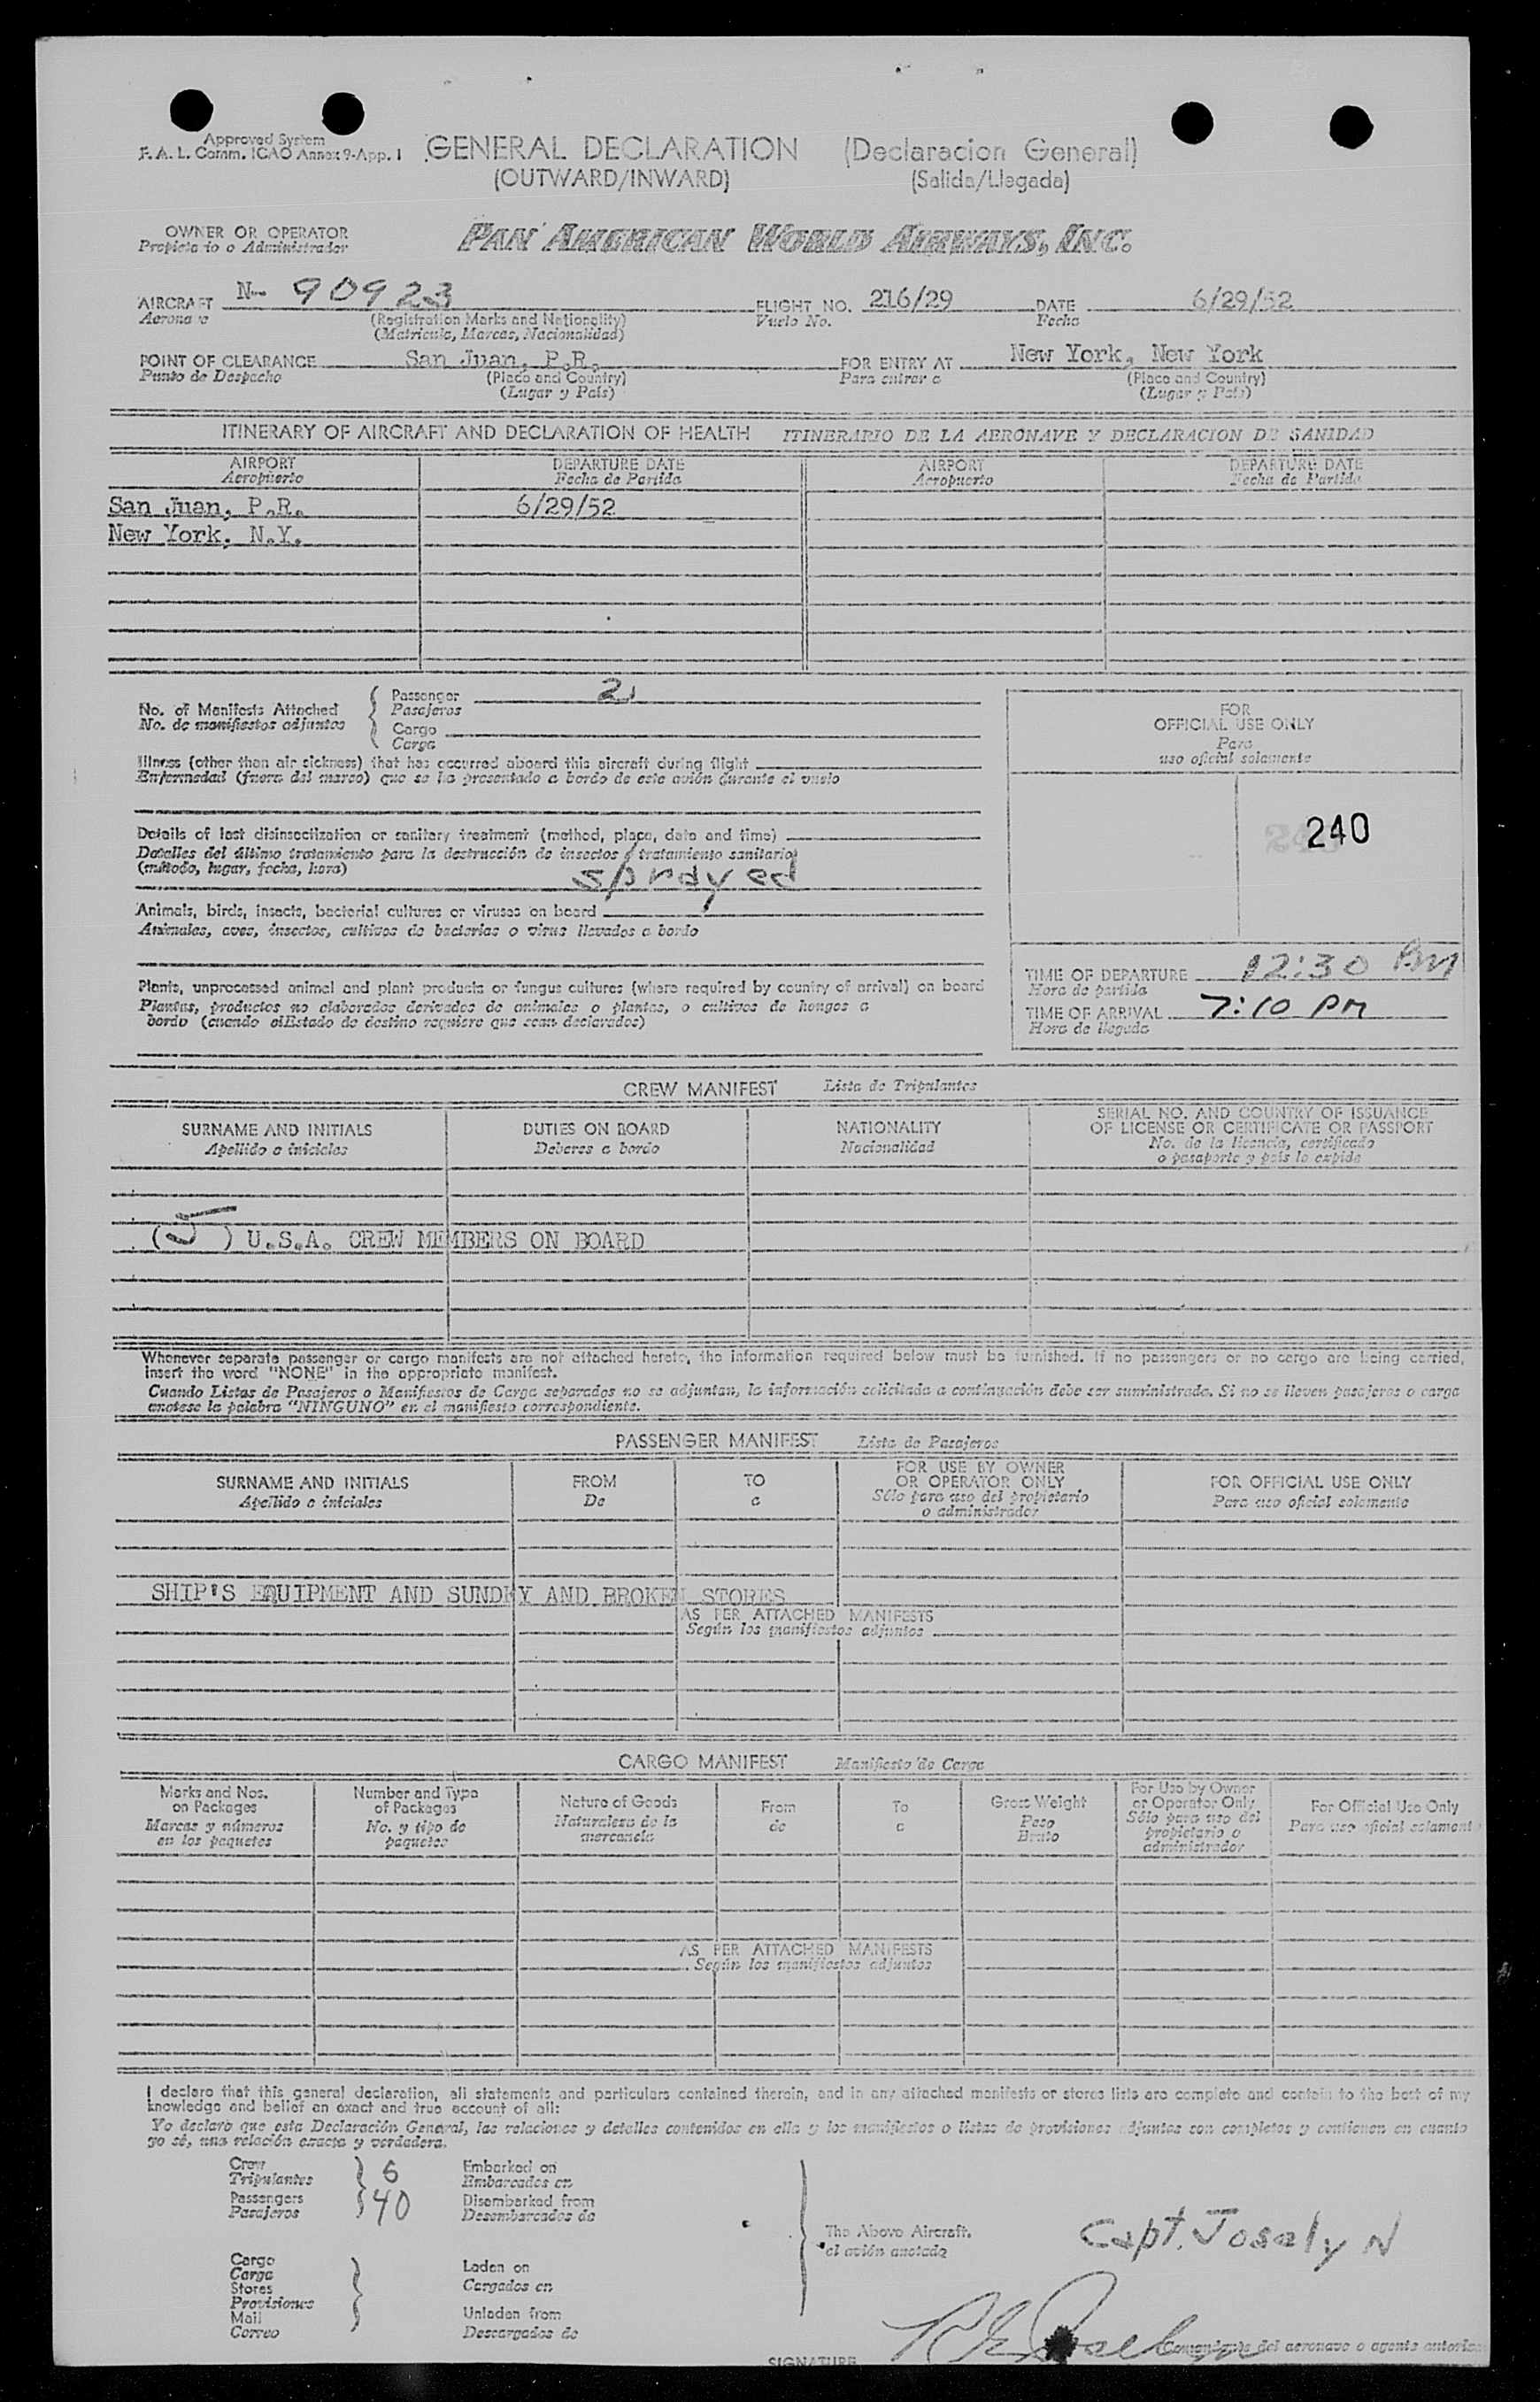 Approved System
F. A. L. Comm. ICAO Annex 9-App. 1
GENERAL DECLARATION (Declaracion General)
(OUTWARD/INWARD) (Salida/Llegada)
OWNER OR OPERATOR
Propietario o Administrador
PAN AMERICAN WORLD AIRWAYS, INC.
AIRCRAFT N- 90923 FLIGHT NO. 216/29 DATE 6/29/52
Aeronave (Registration Marks and Nationality) Vuelo No. Fecha
(Matricula, Marcas, Nacionalidad)
POINT OF CLEARANCE San Juan, P.R. FOR ENTRY AT New York, New York
Punto de Despacho (Place and Country) Para entrar a (Place and Country)
(Lugar y País) (Lugar y País)
ITINERARY OF AIRCRAFT AND DECLARATION OF HEALTH ITINERARIO DE LA AERONAVE Y DECLARACION DE SANIDAD
AIRPORT DEPARTURE DATE AIRPORT DEPARTURE DATE
Aeropuerto Fecha de Partida Aeropuerto Fecha de Partida
San Juan, P.R. 6/29/52
New York, N.Y.
No. of Manifests Attached
No. de manifiestos adjuntos
Passenger
Pasajeros
Cargo
Carga
Illness (other than air sickness) that has occurred aboard this aircraft during flight
Enfermedad (fuera del mareo) que se ha presentado a bordo de este avión durante el vuelo
Details of last disinsectization or sanitary treatment (method, place, date and time)
Detalles del último tratamiento para la destrucción de insectos y tratamiento sanitario
(método, lugar, fecha, hora)
sprayed
Animals, birds, insects, bacterial cultures or viruses on board
Animales, aves, insectos, cultivos de bacterias o virus llevados a bordo
Plants, unprocessed animal and plant products or fungus cultures (where required by country of arrival) on board
Plantas, productos no elaborados derivados de animales o plantas, o cultivos de hongos a
bordo (cuando el Estado de destino requiere que sean declarados)
FOR
OFFICIAL USE ONLY
Para
uso oficial solamente
240
TIME OF DEPARTURE 12:30 PM
Hora de partida
TIME OF ARRIVAL 7:10 PM
Hora de llegada
CREW MANIFEST Lista de Tripulantes
SURNAME AND INITIALS DUTIES ON BOARD NATIONALITY SERIAL NO. AND COUNTRY OF ISSUANCE
OF LICENSE OR CERTIFICATE OR PASSPORT
Apellido e iniciales Deberes a bordo Nacionalidad No. de la licencia, certificado
o pasaporte y país lo expide
(5) U.S.A. CREW MEMBERS ON BOARD
Whenever separate passenger or cargo manifests are not attached hereto, the information required below must be furnished. If no passengers or no cargo are being carried,
insert the word "NONE" in the appropriate manifest.
Cuando Listas de Pasajeros o Manifiestos de Carga separados no se adjuntan, la información solicitada a continuación debe ser suministrada. Si no se lleven pasajeros o carga
anotese la palabra "NINGUNO" en el manifiesto correspondiente.
PASSENGER MANIFEST Lista de Pasajeros
SURNAME AND INITIALS FROM TO FOR USE BY OWNER
OR OPERATOR ONLY FOR OFFICIAL USE ONLY
Apellido e iniciales De a Sólo para uso del propietario
o administrador Para uso oficial solamente
SHIP'S EQUIPMENT AND SUNDRY AND BROKEN STORES
AS PER ATTACHED MANIFESTS
Según los manifiestos adjuntos
CARGO MANIFEST Manifiesto de Carga
Marks and Nos.
on Packages
Marcas y números
en los paquetes
Number and Type
of Packages
No. y tipo de
paquetes
Nature of Goods
Naturaleza de la
mercancía
From
de
To
a
Gross Weight
Peso
Bruto
For Use by Owner
or Operator Only
Sólo para uso del
propietario o
administrador
For Official Use Only
Para uso oficial solamente
AS PER ATTACHED MANIFESTS
Según los manifiestos adjuntos
I declare that this general declaration, all statements and particulars contained therein, and in any attached manifests or stores lists are complete and contain to the best of my
knowledge and belief an exact and true account of all:
Yo declaro que esta Declaración General, las relaciones y detalles contenidos en ella y los manifiestos o listas de provisiones adjuntas son completos y contienen en cuanto
yo sé, una relación exacta y verdadera.
Crew
Tripulantes
Passengers 40
Pasajeros
Embarked on
Embarcados en
Disembarked from
Desembarcados de
Cargo
Carga
Stores
Provisiones
Mail
Correo
Laden on
Cargados en
Unladen from
Descargados de
The Above Aircraft.
el avión anotado
Capt. Josalyn
SIGNATURE
Comandante del aeronave o agente autoriza